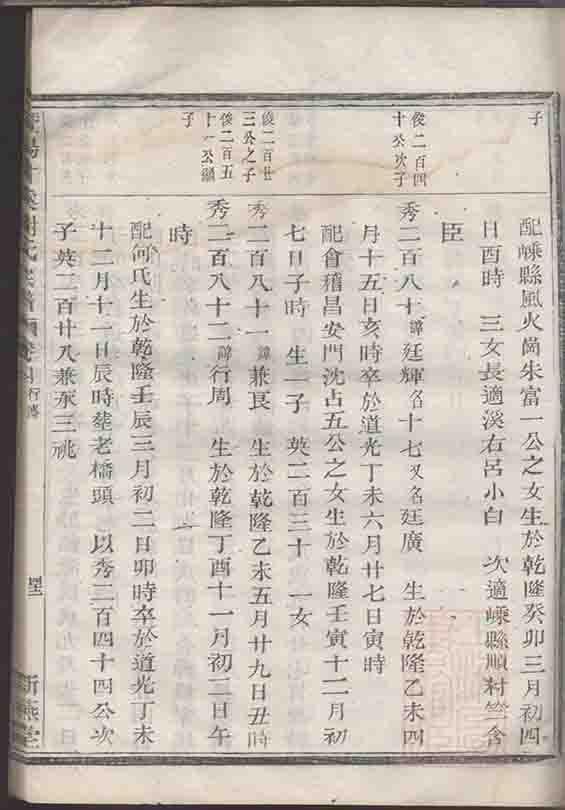 子
配嵊縣風火崗朱富一公之女生於乾隆癸卯三月初四
日酉時 三女長適溪右呂小白 次適嵊縣順村竺含
臣
俊二百四
十公次子
秀二百八十諱廷輝名十七又名廷廣 生於乾隆乙未四
月十五日亥時卒於道光丁未六月廿七日寅時
配會稽昌安門沈占五公之女生於乾隆壬寅十二月初
七日子時 生一子 英二百三十 一女
俊二百廿
三公之子
秀二百八十一諱兼艮 生於乾隆乙未五月廿九日丑時
俊二百五
十一公繼
子
秀二百八十二諱行周 生於乾隆丁酉十一月初二日午
時
配何氏生於乾隆壬辰三月初二日卯時卒於道光丁未
十二月十一日辰時葬老橋頭 以秀二百四十四公次
子英二百廿八兼承三祧
氏宗譜 卷 行傳